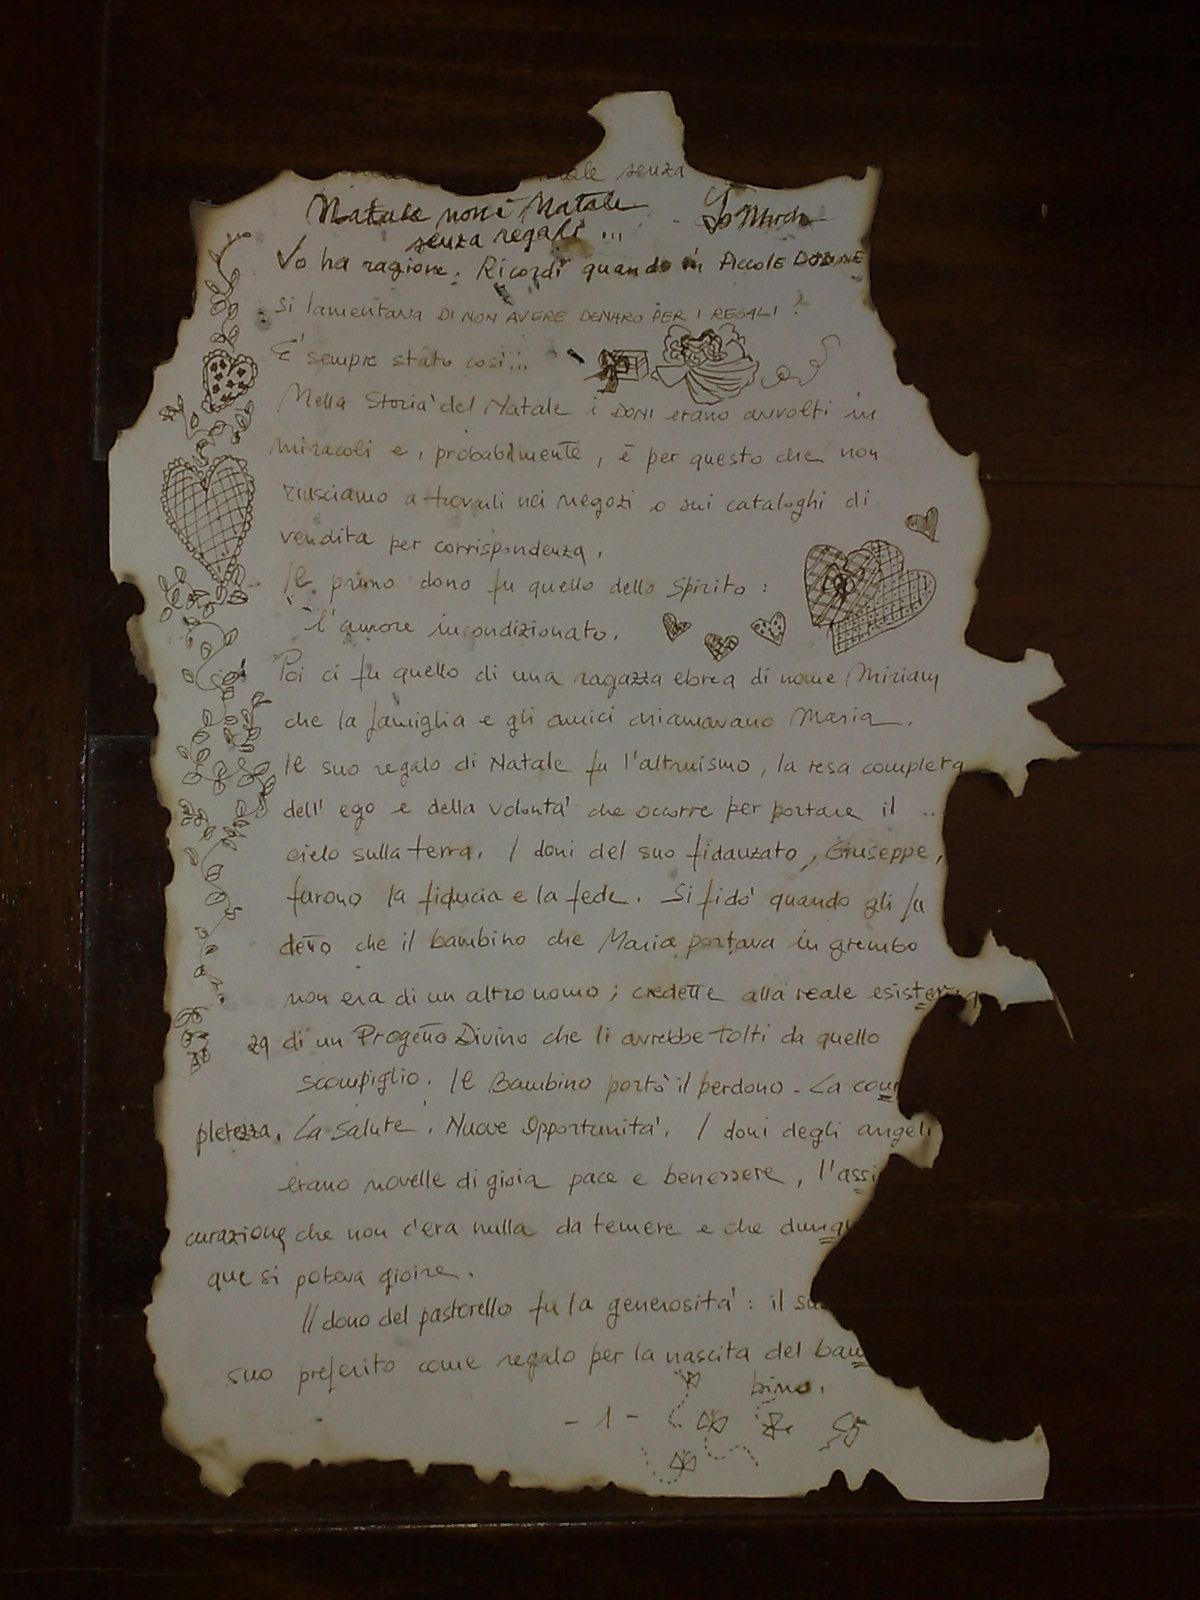 senza
Natale non è Natale
senza regali ... - Jo March
Jo ha ragione. Ricordi quando in PICCOLE DONNE
si lamentava DI NON AVERE DENARO PER I REGALI?
E' sempre stato così...
Nella Storia del Natale i DONI erano avvolti in
miracoli e, probabilmente, è per questo che non
riusciamo a trovarli nei negozi o sui cataloghi di
vendita per corrispondenza.
Il primo dono fu quello dello Spirito:
l'amore incondizionato.
Poi ci fu quello di una ragazza ebrea di nome Miriam
che la famiglia e gli amici chiamavano Maria.
Il suo regalo di Natale fu l'altruismo, la resa completa
dell'ego e della volontà che occorre per portare il ..
cielo sulla terra. I doni del suo fidanzato, Giuseppe,
furono la fiducia e la fede. Si fidò quando gli fu
detto che il bambino che Maria portava in grembo
non era di un altro uomo; credette alla reale esisten
za di un Progetto Divino che li avrebbe tolti da quello
scompiglio. Il Bambino portò il perdono - La com
pletezza. La Salute. Nuove Opportunità. I doni degli angeli
erano novelle di gioia pace e benessere, l'assi
curazione che non c'era nulla da temere e che dunq
que si poteva gioire.
Il dono del pastorello fu la generosità: il su
suo preferito come regalo per la nascita del bam
bino.
- 1 -